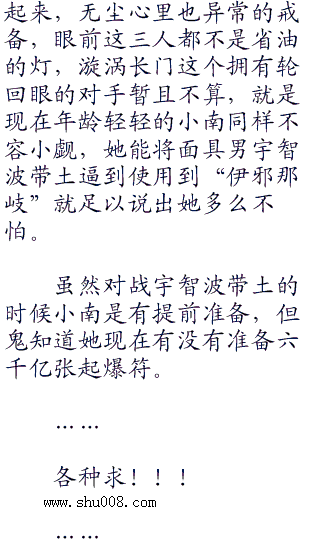 起来，无尘心里也异常的戒
备，眼前这三人都不是省油
的灯，漩涡长门这个拥有轮
回眼的对手暂且不算，就是
现在年龄轻轻的小南同样不
容小觑，她能将面具男宇智
波带土逼到使用到“伊邪那
岐”就足以说出她多么不
怕。
虽然对战宇智波带土的
时候小南是有提前准备，但
鬼知道她现在有没有准备六
千亿张起爆符。
……
各种求！！！
www.shu008.com
……